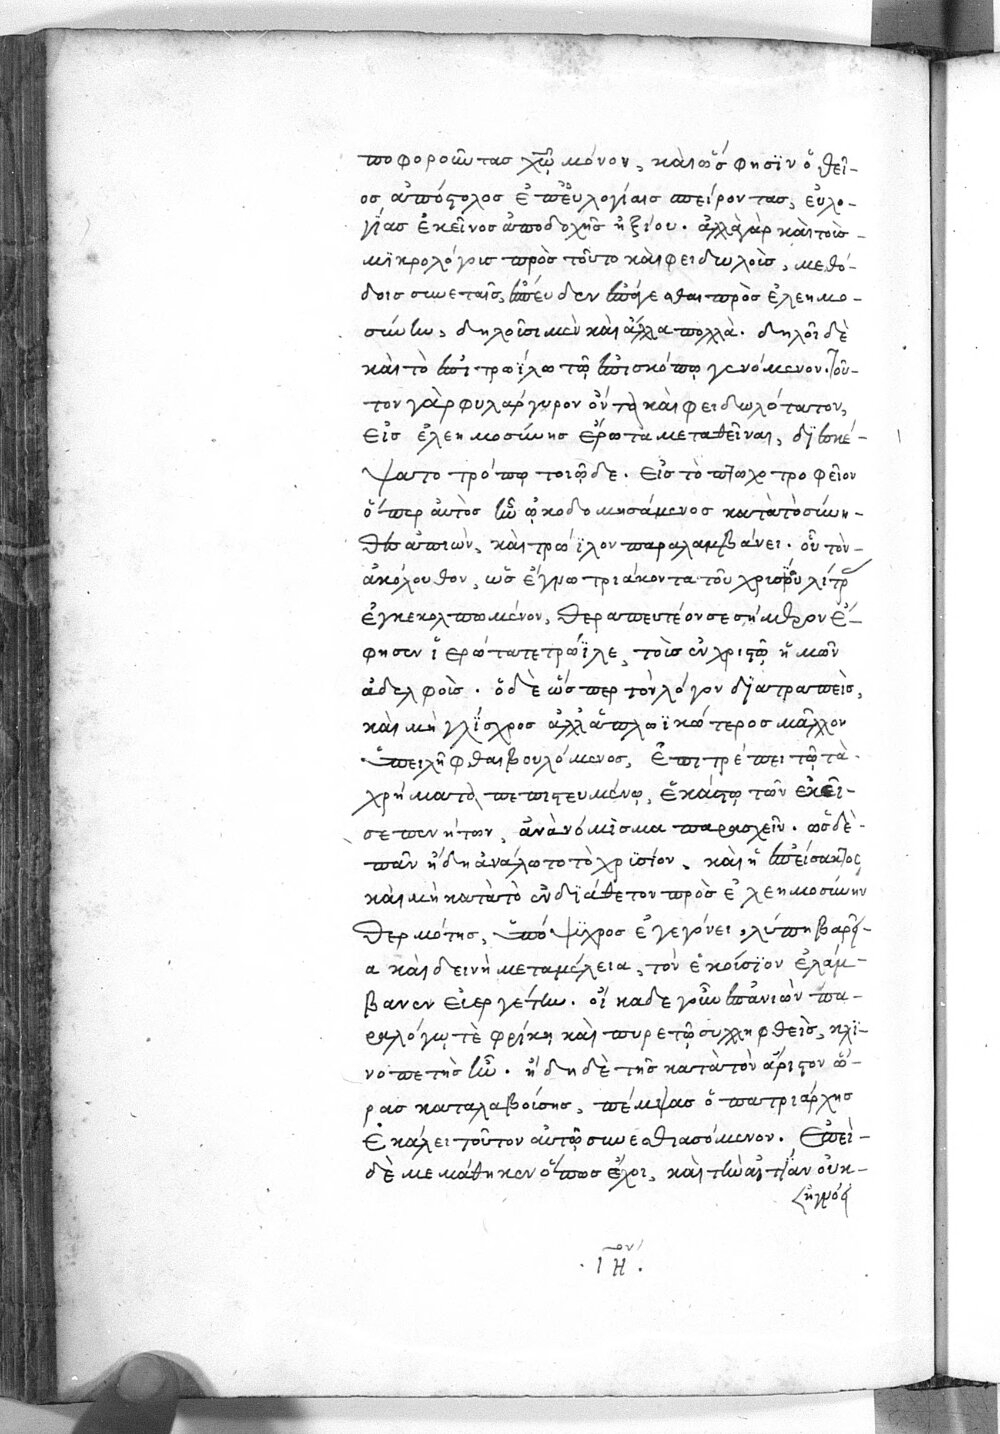 ποφοροῦντας χῷ μόνον, καὶ ὥς φησϊν ὁ θεῖ-
ος ἀπόστολος ἐπ' εὐλογίαις πείροντας, εὐλο-
γίας ἐκεῖνος ἀποδοχῆς ἠξίου. ἀλλὰ γὰρ καὶ τοῖς
μικρολόγοις πρὸς τοῦτο καὶ φειδωλοῖς, μεθό-
δοις συνεταῖς, ἐπάγεσθαι πρὸς ἐλεημο-
σύνην, δηλοῖσι μὲν καὶ ἄλλα πολλὰ. δηλοῖ δὲ
καὶ τὸ ἐπὶ τρωΐλω τῷ ἐπισκόπῳ γενόμενον. Τοῦ-
τον γὰρ φυλάργυρον ὄντα καὶ φειδωλότατον,
εἰς ἐλεημοσύνης ἔρωτα μεταθεῖναι, διεσκέ-
ψατο τρόπῳ τοιῷδε. εἰς τὸ πτωχοτροφεῖον
ὅπερ αὐτὸς ἦν ᾠκοδομησάμενος κατὰ τὸ σύνη-
θες ἀπιὼν, καὶ τρώϊλον παραλαμβάνει. οὗ τὸν
ἀκόλουθον, ὡς ἔγνω τριάκοντα τοῦ χρυσοῦ λίτρ
ἐγκεκολπωμένον, θεραπευτέον σε σήμερον ἔ-
φησεν ἱερώτατε τρώϊλε, τοῖς ἐν χριστῷ ἡμῶν
ἀδελφοῖς. ὁ δὲ ὥσπερ τὸν λόγον διατραπεὶς,
καὶ μὴ γλίσχρος ἀλλ' ἁπλωϊκώτερος μᾶλλον
ὑπειλῆφθαι βουλόμενος, ἐπιτρέπει τῷ τὰ
χρήματα πεπιστευμένῳ, ἑκάστῳ τῶν ἐκεῖ-
σε πενήτων, ἀνὰ νόμισμα παρασχεῖν. ὡς δὲ
πᾶν ἤδη ἀνάλωτο τὸ χρυσίον, καὶ ἡ ἐπείσακτος
καὶ μὴ κατὰ τὸ ἐνδιάθετον πρὸς ἐλεημοσύνην
θερμότης, ὑπόψυχρος ἐγεγόνει, λύπη βαρεῖ-
α καὶ δεινὴ μεταμέλεια, τὸν ἑκούσϊον ἐλάμ-
βανεν εὐεργέτην. οἴκαδε γοῦν ἐπανιὼν πα-
ραλόγῳ τὲ φρίκῃ καὶ πυρετῷ συλληφθεὶς, κλι-
νοπετὴς ἦν. ἤδη δὲ τῆς κατὰ τὸν ἄριστον ὥ-
ρας καταλαβούσης, πέμψας ὁ πατριάρχης
ἐκάλει τοῦτον αὐτῷ συνεσθιασόμενον. ἐπεὶ
δὲ μεμάθηκεν ὅπως ἔχοι, καὶ τὴν αἰτίαν οὐκ
ἠγνόει
. ΙΗ ον .